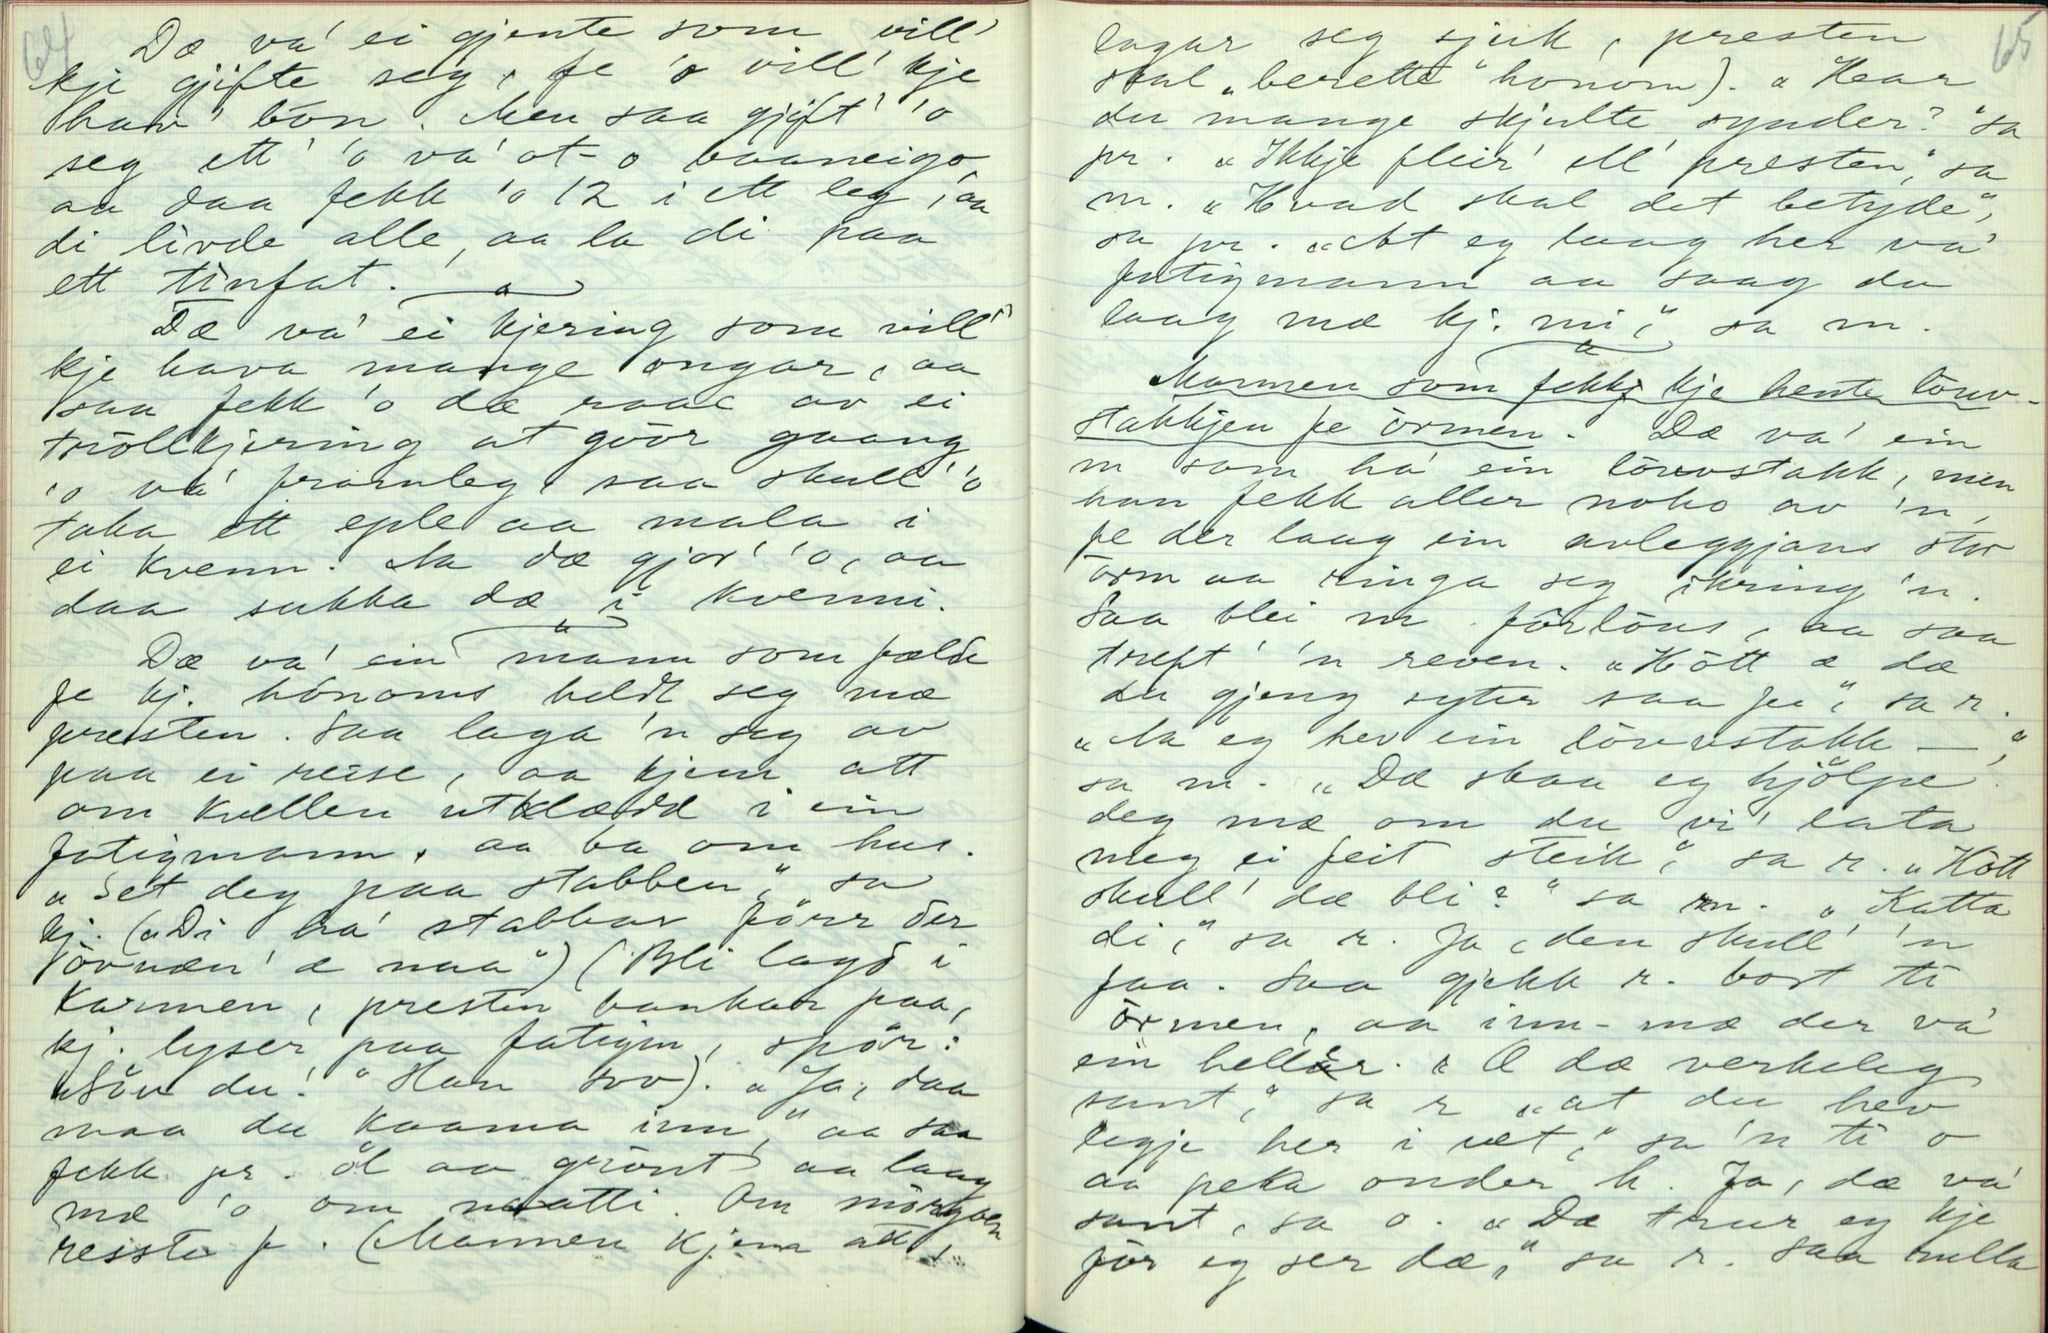 64
Dæ va' ei gjente som vill'
kje gjifte seg, fe 'o vill' kje
hav' bon. Men saa gjift' 'o
seg ett' 'o va' ot-o baaneigo,
aa daa fekk 'o 12 i ett leg, aa
di livde alle, aa la di paa
ett tinfat.
Dæ va' ei kjering som vill'
kje hava mange ongar, aa
saa fekk 'o dæ raae av ei
tröllkjering at góor gaang
'o va' framleg, saa skull' 'o
taka ett eple aa mala i
ei kvenn. Aa dæ gjor' 'o, aa
daa sukka dæ i kvenni.
Dæ va' ein mann som fælde
fe kj. hónoms heldt seg mæ
presten. Saa laga 'n seg av
paa ei reise, aa kjem att
om kvellen utklædd i ein
fatigmann, aa ba om hus.
"Set deg paa stabben," sa
kj. ("Di ha' stabbar förr der
övnæn' æ naa") (Bli lagd i
karmen, presten bankar paa,
kj. lyser paa fatigm, spör:
"Söv du!" Han sov). "Ja, daa
maa du kaama inn," aa saa
fekk pr. öl aa gront' aa laag
mæ 'o om naatti. Om mörgaen
reisste p. (Mannen kjem att,
65
lagar seg sjuk, presten
skal "berette" honom). "Haar
du mange skjulte synder?" sa
pr. "Ikkje fleir' ell' presten," sa
m. "Hvad skal det betyde",
sa pr. "At eg laag her va'
fatigmann aa saag du
laag mæ kj. mi," sa m.
Mannen som fekk kje hente löuv-
stakkjen fe örmen. Dæ va' ein
m som ha' ein löuvstakk, men
han fekk aller noko av 'n,
fe der laag ein avleggjans stor
örm aa ringa seg ikring 'n.
Saa blei m. förlöus, aa saa
treft' 'n reven. "Hött æ dæ
du gjeng syter saa fee", sa r.
"Aa eg hev ein löuvstakk —",
sa m. "Dæ skaa eg hjölpe
deg mæ om du vi' lata
meg ei feit steik," sa r. "Hött
skull' dæ bli?" sa m. "Katta
di," sa r. Ja, den skull' 'n
faa. Saa gjekk r. bort ti
örmen, aa inn-mæ der va'
ein hellar. "Æ dæ verkeleg
sant," sa r "at du hev
legje her i vet," sa 'n ti o
aa peka onder h. Ja, dæ va'
sant, sa o. "Dæ trur eg kje
för eg ser dæ," sa r. Saa rulla